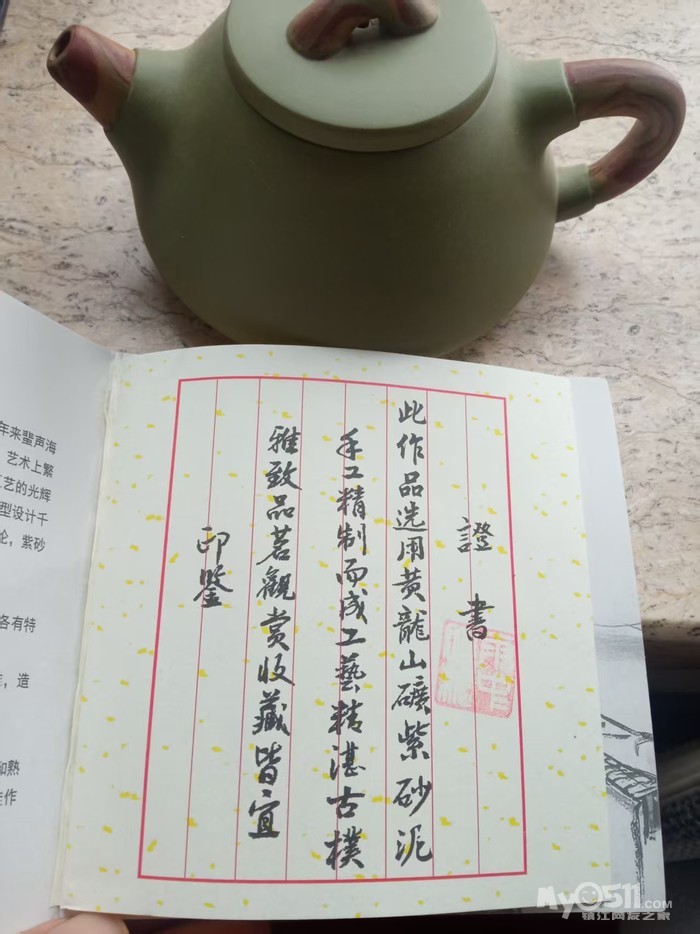 證書
此作品选用黄龍山礦紫砂泥
手工精制而成工藝精湛古樸
雅致品茗觀赏收藏皆宜
印鑒
年来蜚声海
艺术上繁
艺的光辉
型设计千
紫砂
各有特
造
和熟
佳作
My0511.com
镇江网友之家